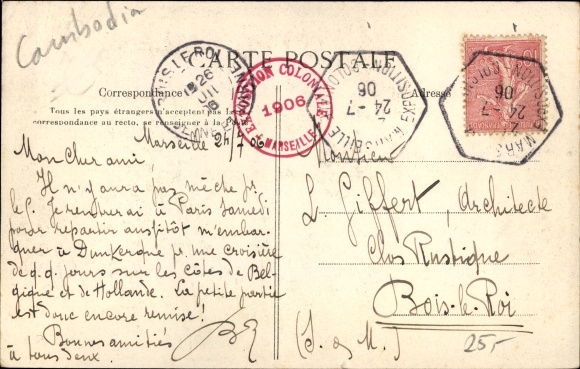 Cambodia
CARTE POSTALE
Correspondance
Adresse
Tous les pays étrangers n'acceptent pas la
correspondance au recto, se renseigner à la
BOIS-LE-ROI
26
JUIL
06
EXPOSITION COLONIALE
1906
MARSEILLE
MARSEILLE EXPOSITION COLON
24 - 7
06
MARSEILLE EXPOSITION COLON
24 - 7
06
Marseille 24/7 06
Mon cher ami
Il n'y aura pas mèche pr.
le 5. Je rentrerai à Paris Samedi
pour repartir aussitôt m'embar-
quer à Dunkerque pr. une croisière
de q.q. jours sur les côtes de Bel-
gique et de Hollande. La petite partie
est donc encore remise!
Bonnes amitiés
à tous deux.
Monsieur
L. Giffert, Architecte
Clos Rustique
Bois-le-Roi
(S. & M.)
25,-